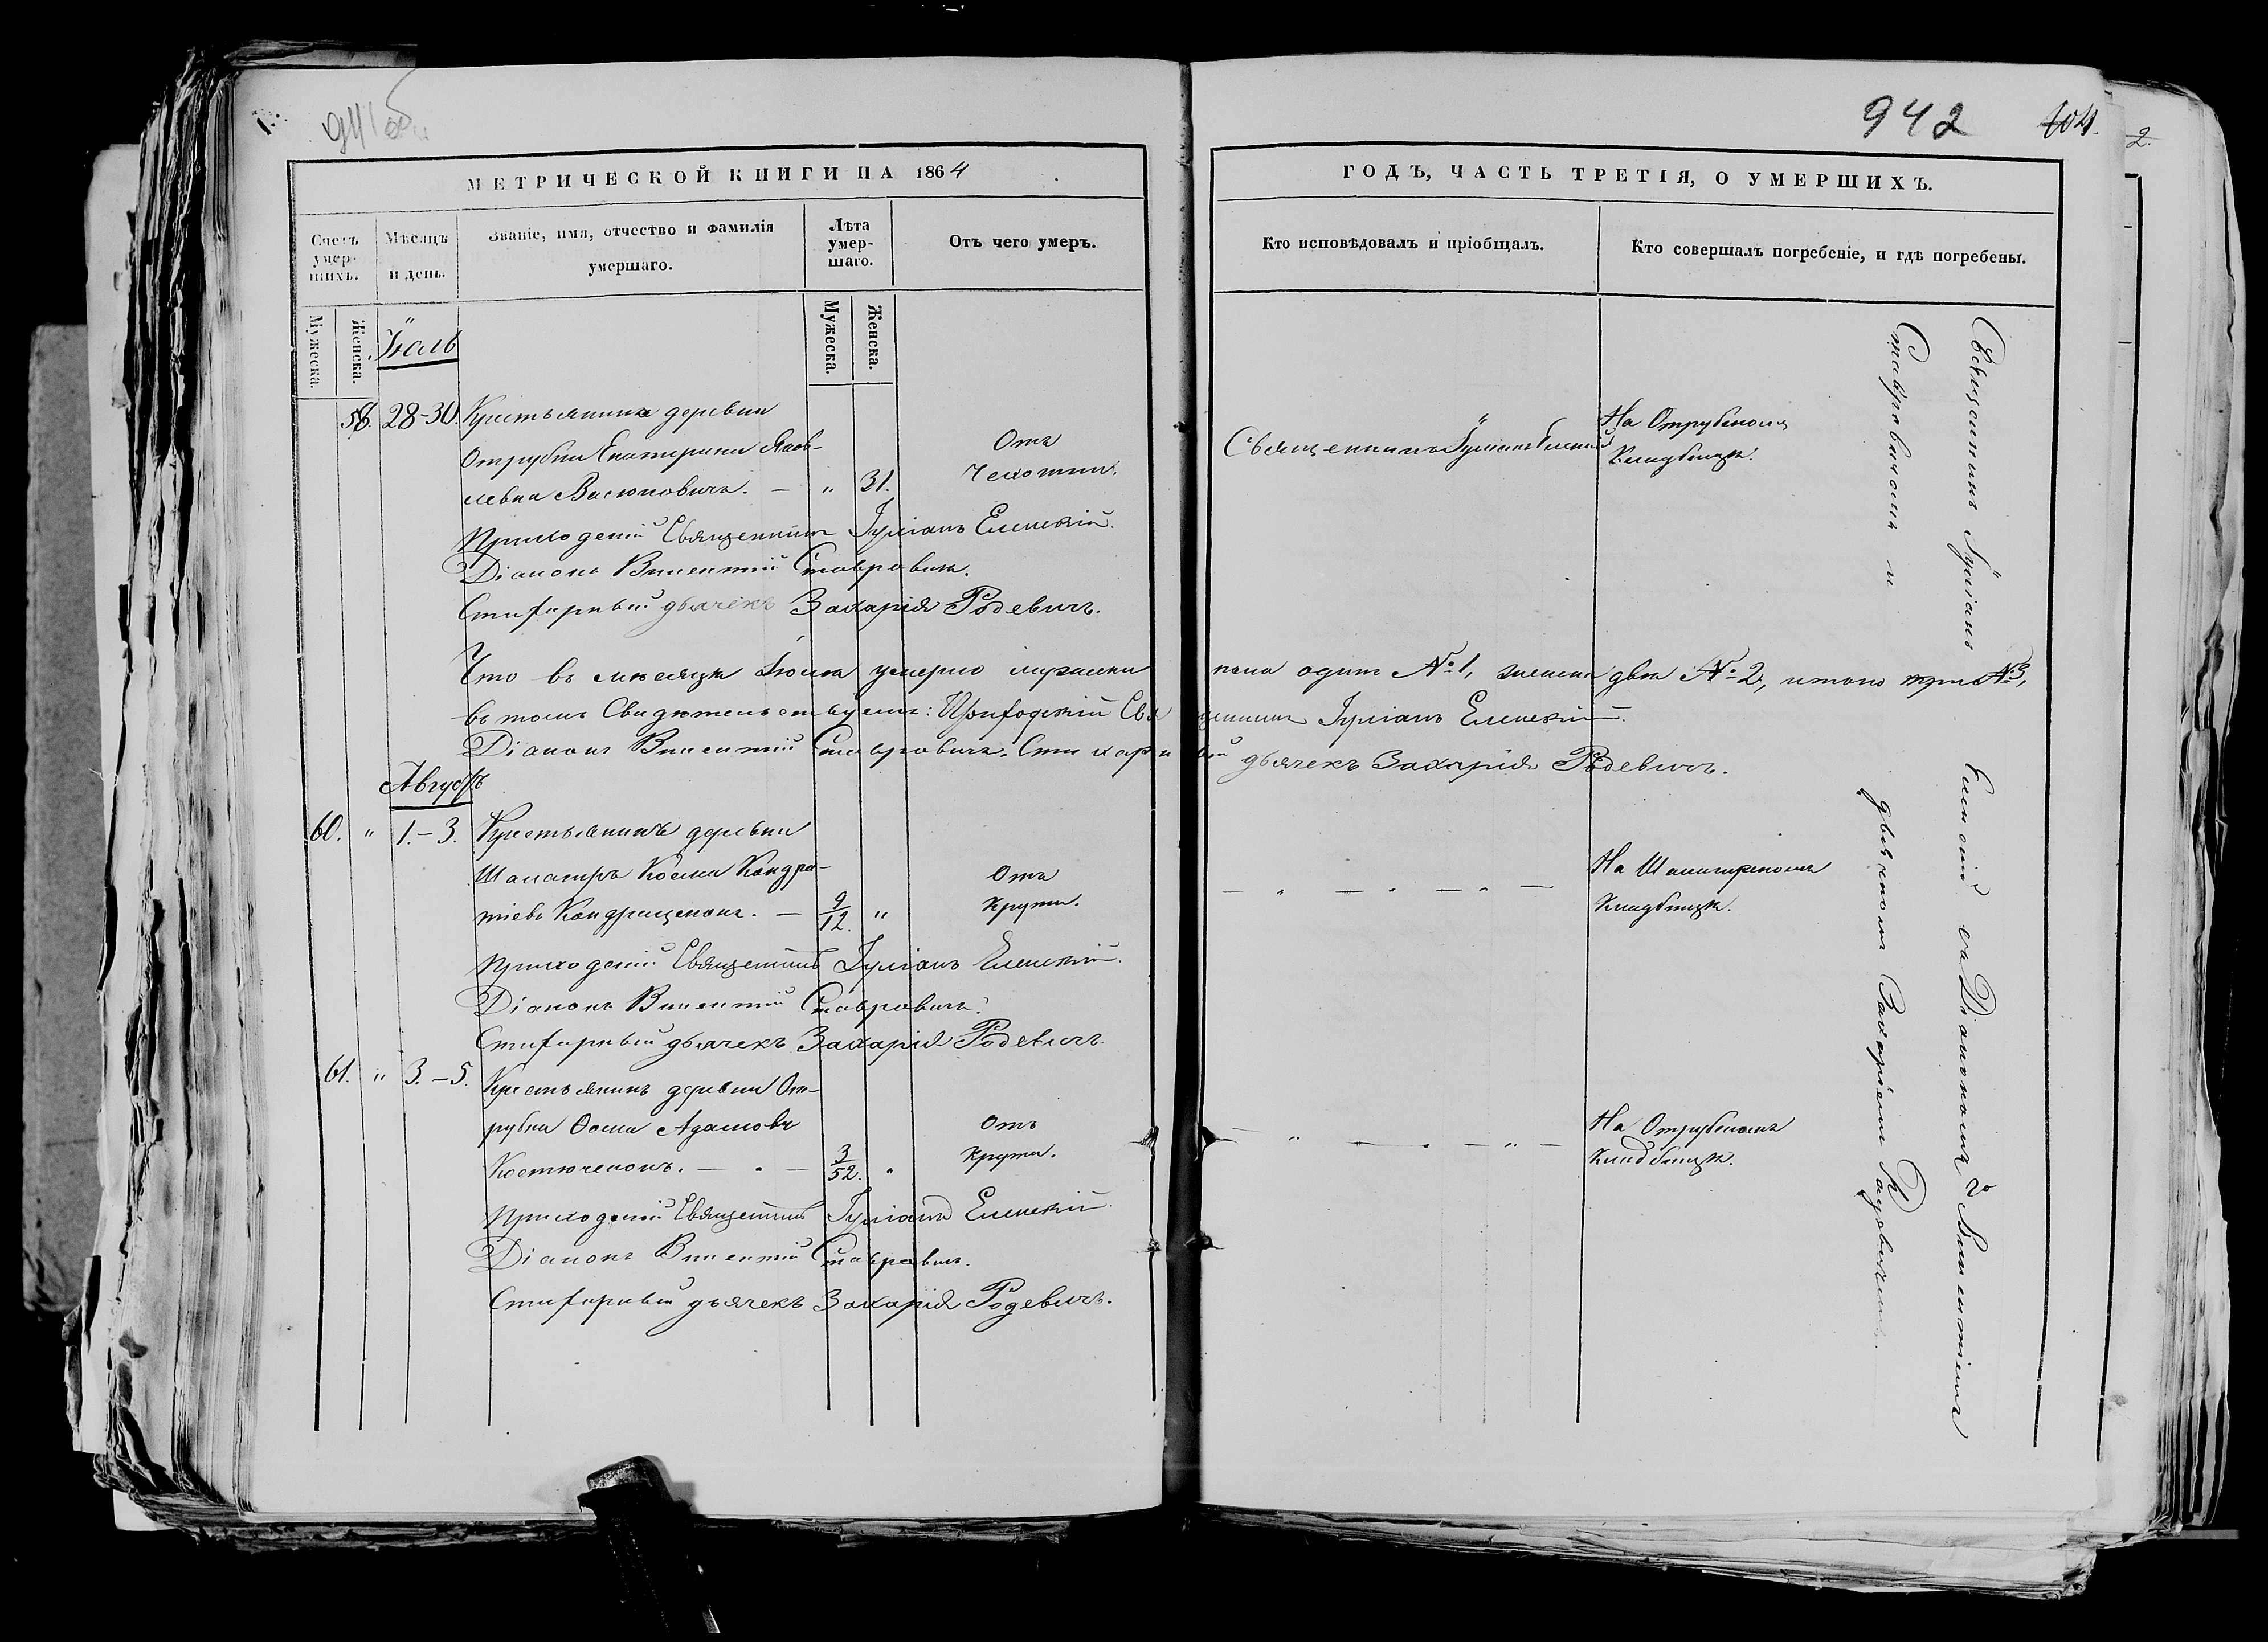 942
104.
2.
МЕТРИЧЕСКОЙ КНИГИ НА 1864
ГОДЪ, ЧАСТЬ ТРЕТІЯ, О УМЕРШИХЪ.
Счетъ умер-шихъ.
Мѣсяцъ и день.
Званіе, имя, отчество и фамилія умершаго.
Лѣта умер-шаго.
Отъ чего умеръ.
Кто исповѣдовалъ и пріобщалъ.
Кто совершалъ погребеніе, и гдѣ погребены.
Мужеска.
Женска.
Мужеска.
Женска.
Іюль
28-30. Крестьянинка деревни
Отрубка Екатерина Яков-
левна Васюковичъ. — " 31.
Отъ
Чехотки.
Священникъ Іуліанъ Еленскій
На Отрубскомъ
Кладбищѣ.
Приходскій Священникъ Іуліанъ Еленскій.
Діаконъ Викентій Ставровичъ.
Стихарный дьячекъ Захарія Родевичъ.
Что въ мѣсяцѣ Іюлѣ умерло мужеска пола одинъ № 1, женска два № 2, итого три № 3,
въ томъ Свидѣтельствуемъ: Приходскій Священникъ Іуліанъ Еленскій.
Діаконъ Викентій Ставровичъ. Стихарный дьячекъ Захарія Родевичъ.
Августъ
60. " 1.-3. Крестьянинъ деревни
Косма Кондра-
тіевъ Кондращенокъ. — 9/12. "
Отъ
Крупа.
На
Кладбищѣ.
Приходскій Священникъ Іуліанъ Еленскій.
Діаконъ Викентій Ставровичъ.
Стихарный дьячекъ Захарія Родевичъ.
61. " 3.-5. Крестьянинъ деревни От-
рубка Ѳома Адамовъ
Костюченокъ. — " — 3/52. "
Отъ
Крупа.
На Отрубскомъ
Кладбищѣ.
Приходскій Священникъ Іуліанъ Еленскій.
Діаконъ Викентій Ставровичъ.
Стихарный дьячекъ Захарія Родевичъ.
Священникъ Іуліанъ Еленскій съ Діакономъ Викентіемъ
Ставровичомъ и дьячкомъ Захаріемъ Радевичемъ.